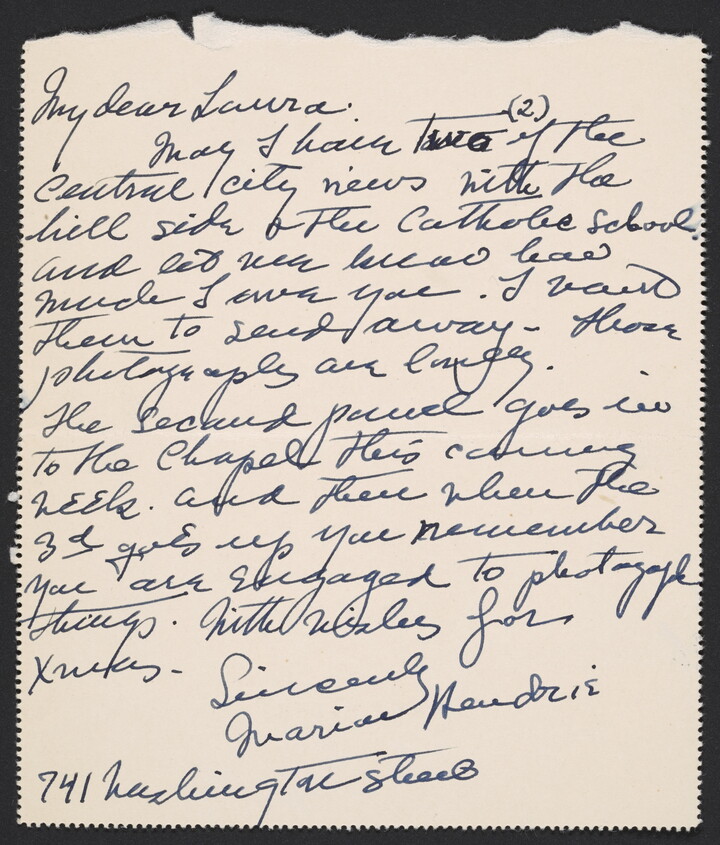 My dear Laura.
May I have two (2) of the
Central City views with the
hill side & the Catholic School
and let me know how
much I owe you. I want
them to send away - those
photographs are lovely.
The second panel goes in
to the Chapel this coming
week. and then when the
3d goes up you remember
you are engaged to photogaph
things. With wishes for
Xmas -
Sincerely
Marion Hendrie
741 Washington Street